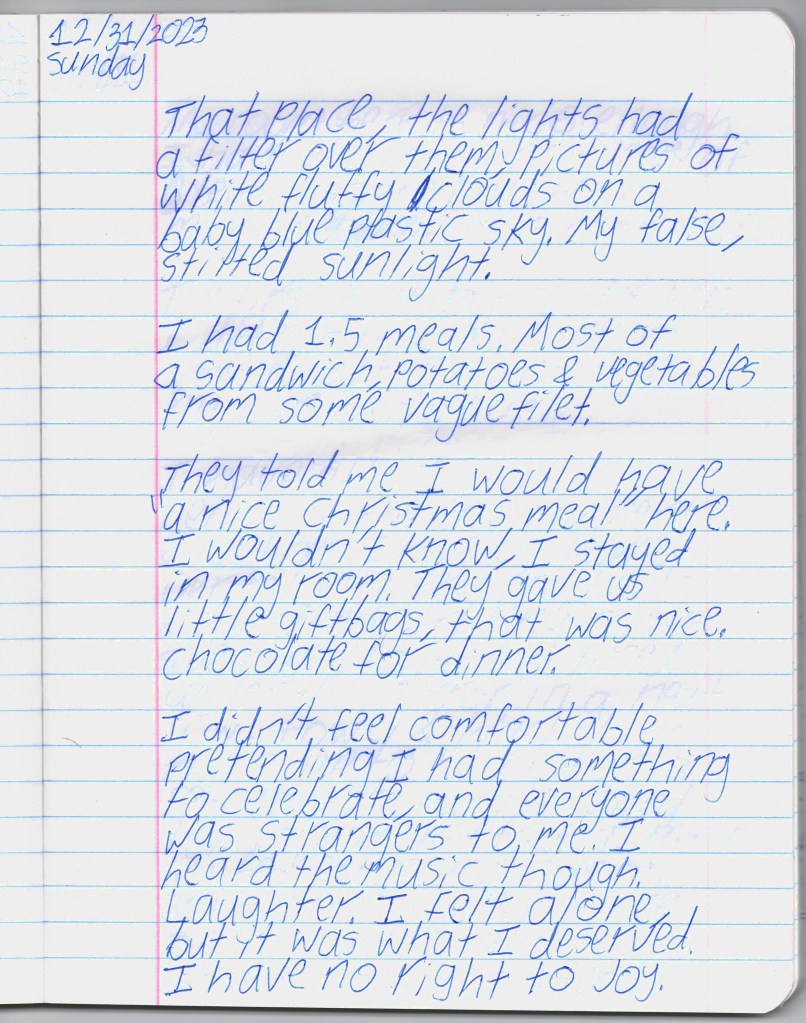 12/31/2023
Sunday
That place, the lights had
a filter over them, pictures of
white fluffy clouds on a
baby blue plastic sky. My false,
stilted sunlight.
I had 1.5 meals. Most of
a sandwich, potatoes & vegetables
from some vague filet.
They told me I would have
"a nice Christmas meal" here.
I wouldn't know, I stayed
in my room. They gave us
little giftbags, that was nice.
Chocolate for dinner.
I didn't feel comfortable
pretending I had something
to celebrate, and everyone
was strangers to me. I
heard the music though.
Laughter. I felt alone,
but it was what I deserved.
I have no right to joy.